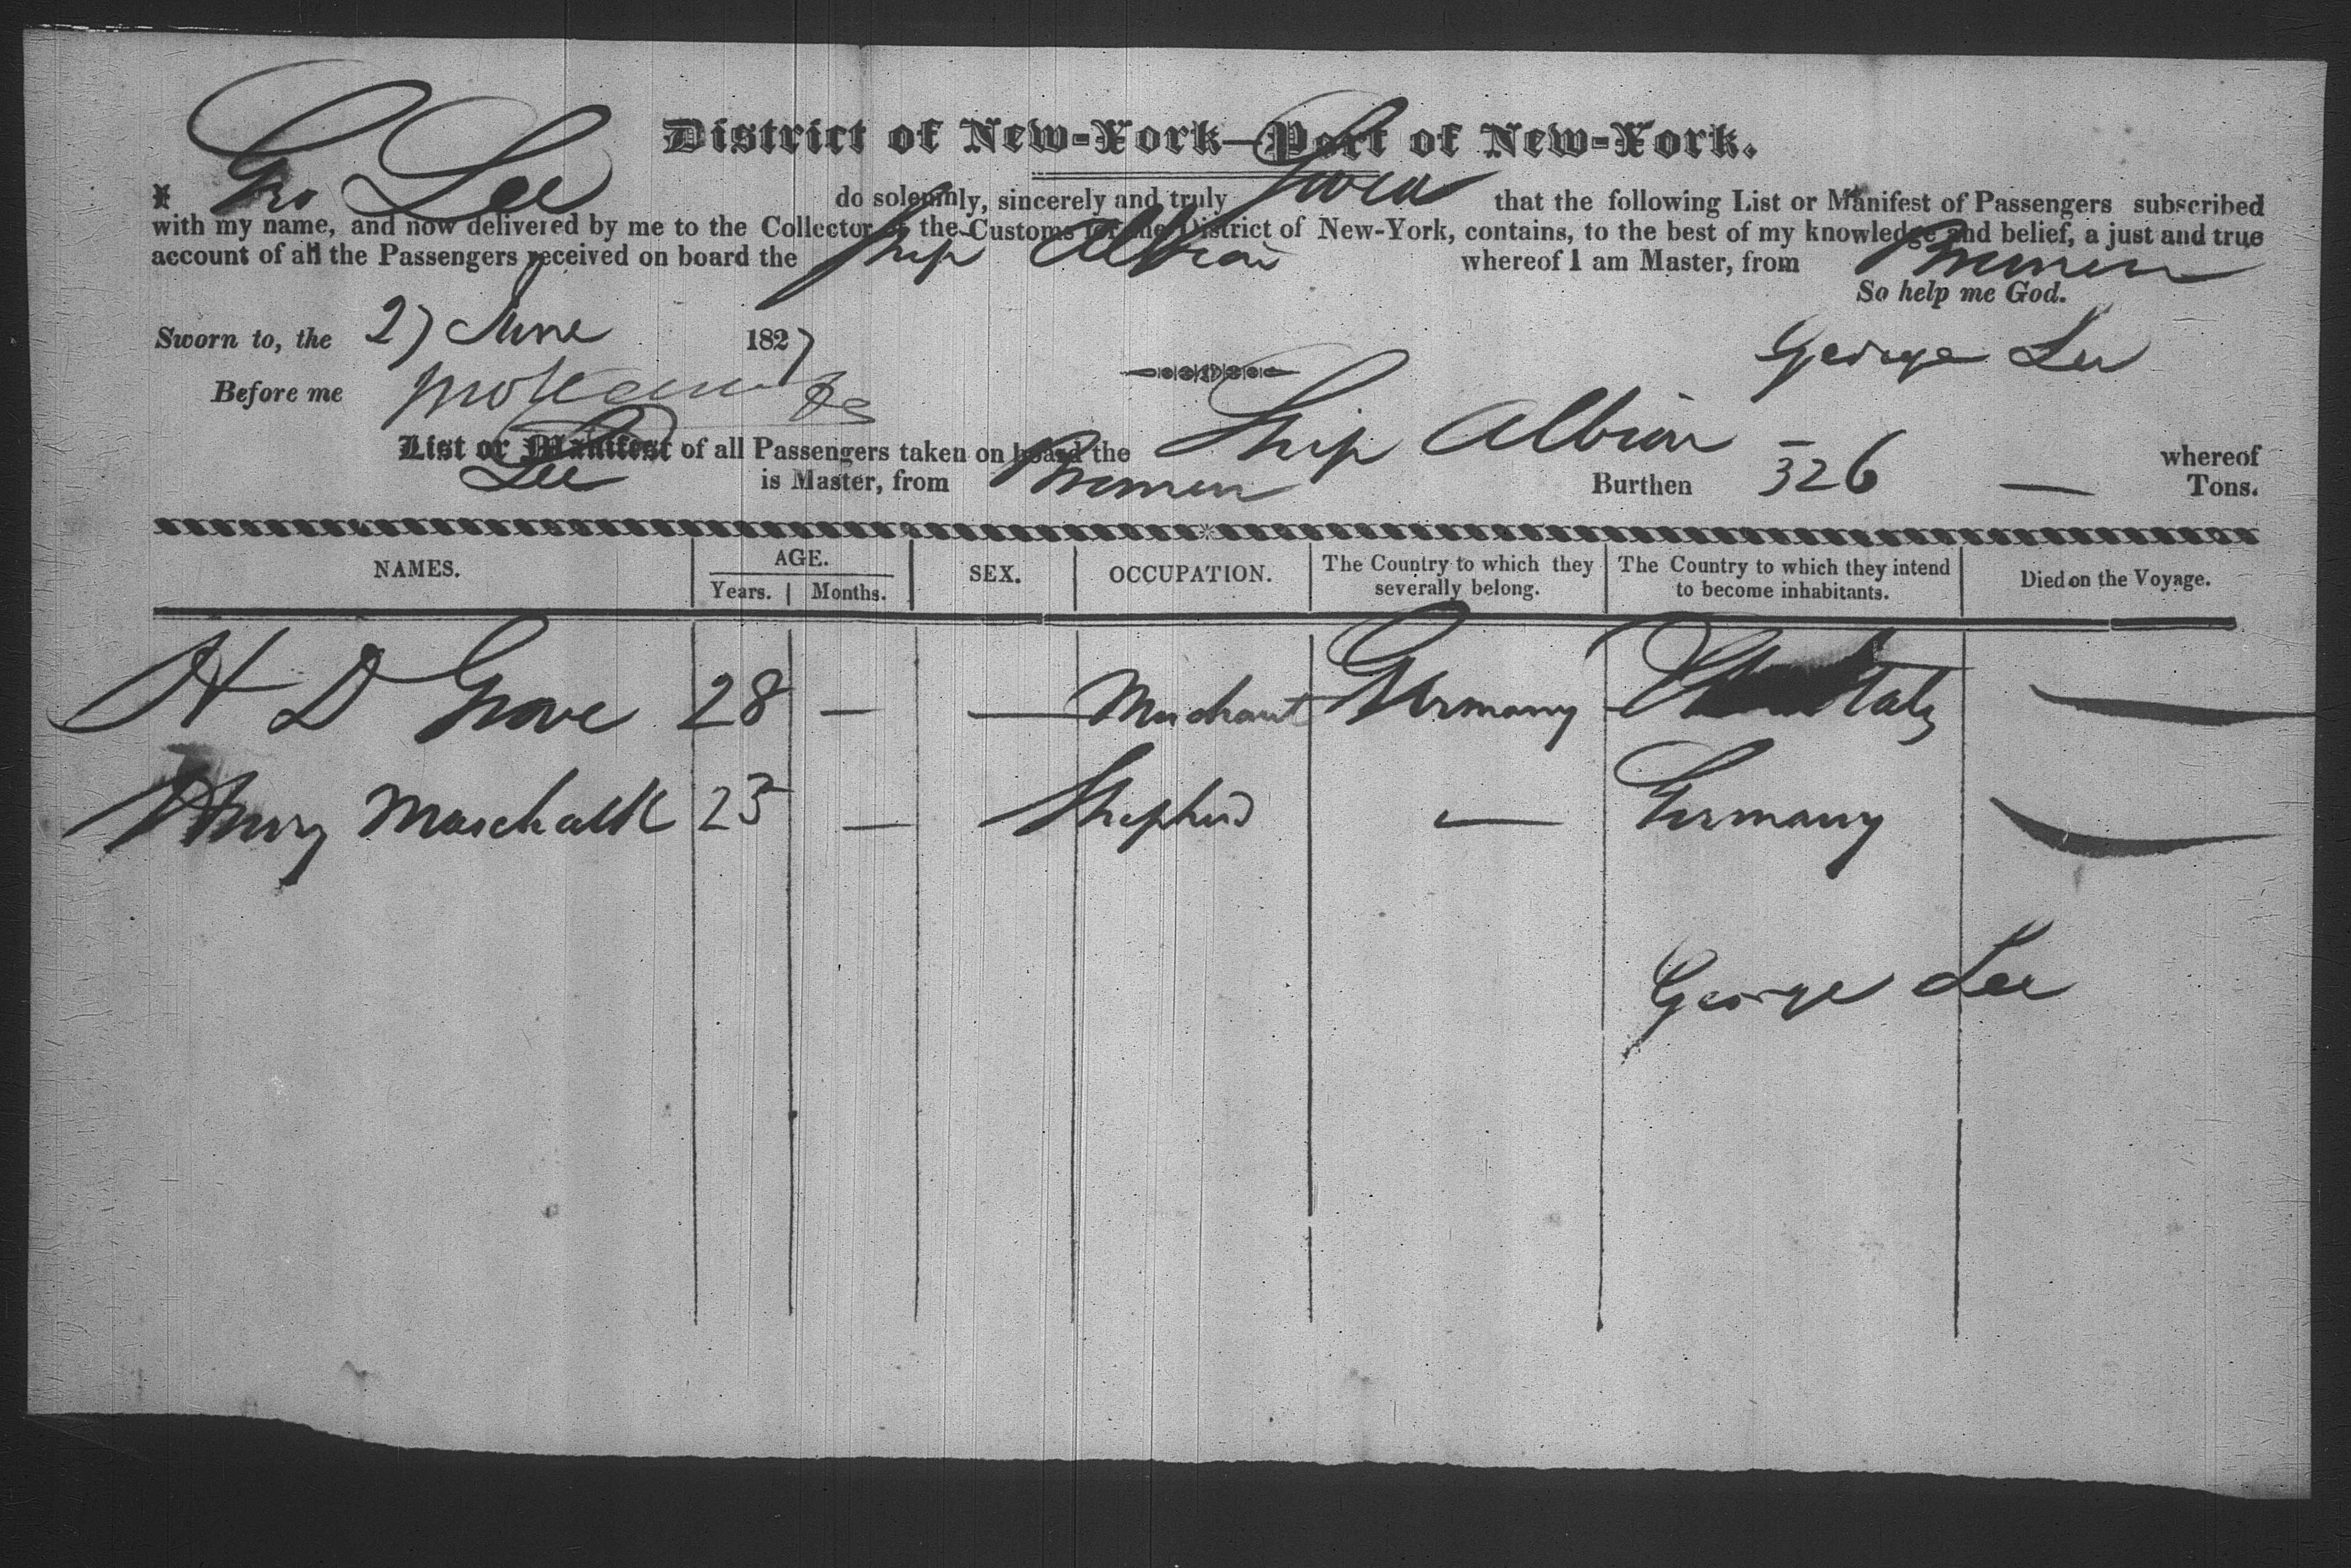 District of New-York—Port of New-York.
I Geo Lee do solemnly, sincerely and truly Swear that the following List or Manifest of Passengers subscribed
with my name, and now delivered by me to the Collector of the Customs for the District of New-York, contains, to the best of my knowledge and belief, a just and true
account of all the Passengers received on board the Ship Albion whereof I am Master, from Bremen
So help me God.
Sworn to, the 27 June 1827
George Lee
Before me
List or Manifest of all Passengers taken on board the Ship Albion whereof
Lee is Master, from Bremen Burthen 326 — Tons.
NAMES. AGE. SEX. OCCUPATION. The Country to which they severally belong. The Country to which they intend to become inhabitants. Died on the Voyage.
Years. Months.
H D Grove 28 — — Merchant Germany —
Henry Marschalk 23 — Shepherd — Germany —
George Lee